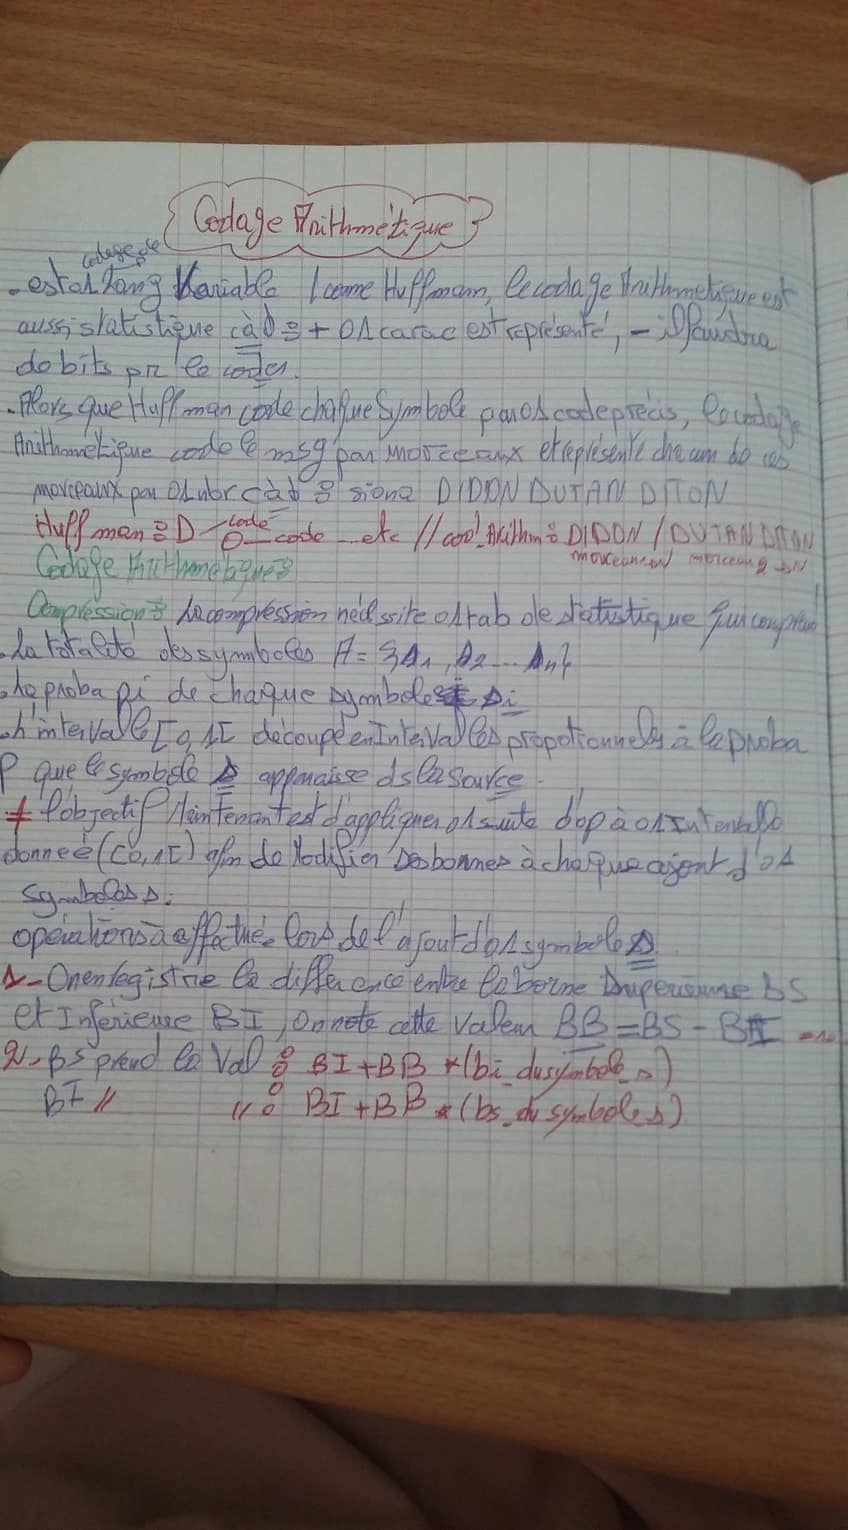 Codage Arithmétique
codage de
- est à long Variable / come Huffmann, le codage Arithmetique est
aussi statistique càd : + 01 carac est représenté, - il faudra
de bits pr le coder.
. Alors que Huffman code chaque Symbole par 01 code précis, le codage
Arithmetique code le msg par morceaux et représente chacun de ces
morceaux par 01 nbr càd : si on a DIDON DUTAN DITON
Huffman : D - code O - code ... etc // cod Arithm : DIDON / DUTAN DITON
morceau morceau 2
Codage Arithmetique :
Compression : La compression nécissite 01 tab de statistique qui comprend
. La totalité des symboles A = {A1, A2 ... An}
. La proba pi de chaque symbole si
. L'intervale [0,1[ découpé en Intervalles propotionnels à la proba
P que le symbole s apparaisse ds la source.
≠ l'objectif Maintenant est d'appliquer 01 suite d'op à 01 Intervalle
donnée ([0,1[) afin de Modifier ses bornes à chaque ajout d'01
symboles s.
opérations à effectué lors de l'ajout d'01 symbole s
1- On enregistrie la différence entre la borne superieure BS
et Inférieure BI, On note cette valeur BB = BS - BI
2- BS prend la Val : BI + BB * (bi_du symbole_s)
BI // // : BI + BB * (bs_du symbole s)